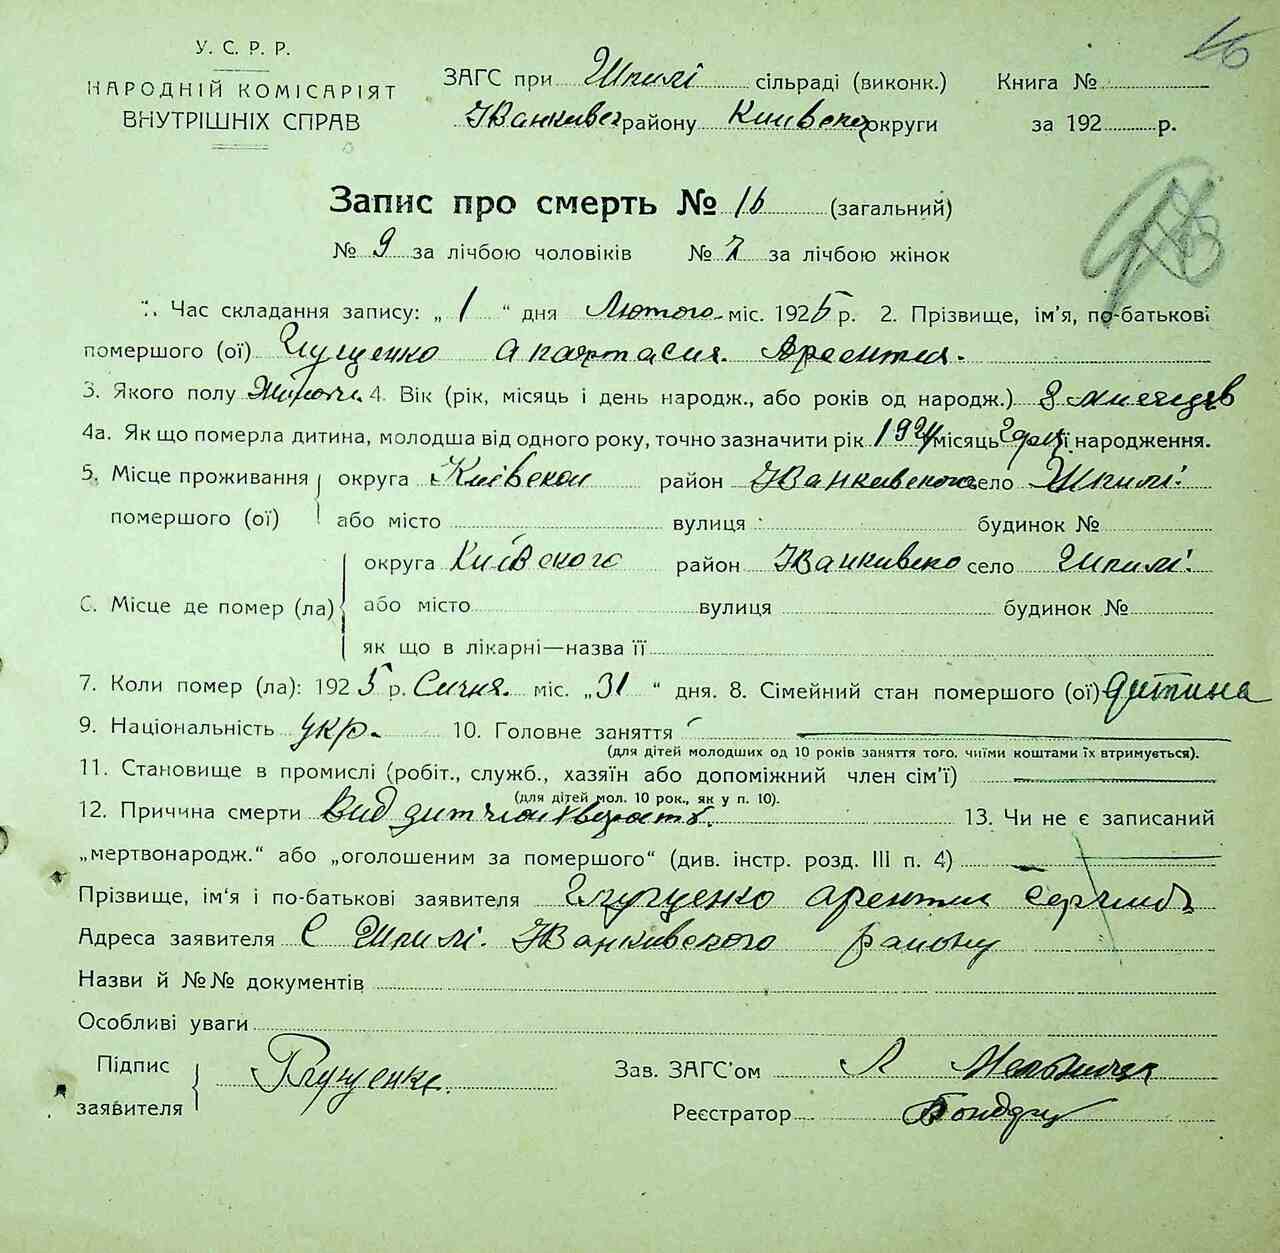 46
У. С. Р. Р.
НАРОДНІЙ КОМІСАРІЯТ
ВНУТРІШНІХ СПРАВ
ЗАГС при Шпилі сільраді (виконк.) Книга №
Іванкивс району Киивског округи за 192 р.
Запис про смерть № 16 (загальний)
№ 9 за лічбою чоловіків № 7 за лічбою жінок
1. Час складання запису: „ 1 “ дня Лютого міс. 1925 р. 2. Прізвище, ім’я, по-батькові
помершого (ої) Глущенко Анастасия Арентия.
3. Якого полу Жіночи. 4. Вік (рік, місяць і день народж., або років од народж.) 8 миесцив
4а. Як що померла дитина, молодша від одного року, точно зазначити рік 1924 місяць і народження.
5. Місце проживання помершого (ої) округа Києвской район Іванкивского село Шпилі.
або місто вулиця будинок №
6. Місце де помер (ла) округа Києвского район Іванкивско село Шпилі.
або місто вулиця будинок №
як що в лікарні—назва її
7. Коли помер (ла): 1925 р. Сичня. міс. „31 “ дня. 8. Сімейний стан помершого (ої) дитина
9. Національність укр. 10. Головне заняття
(для дітей молодших од 10 років заняття того, чиїми коштами їх втримується).
11. Становище в промислі (робіт., служб., хазяїн або допоміжний член сім’ї)
(для дітей мол. 10 рок., як у п. 10).
12. Причина смерти Вид 13. Чи не є записаний
„мертвонародж.“ або „оголошеним за помершого“ (див. інстр. розд. III п. 4)
Прізвище, ім’я і по-батькові заявителя Глущенко Арентий
Адреса заявителя С Шпилі. Іванкивского району
Назви й №№ документів
Особливі уваги
Підпис заявителя Глущенко Зав. ЗАГС’ом Л Мельничук
Реєстратор Бондар